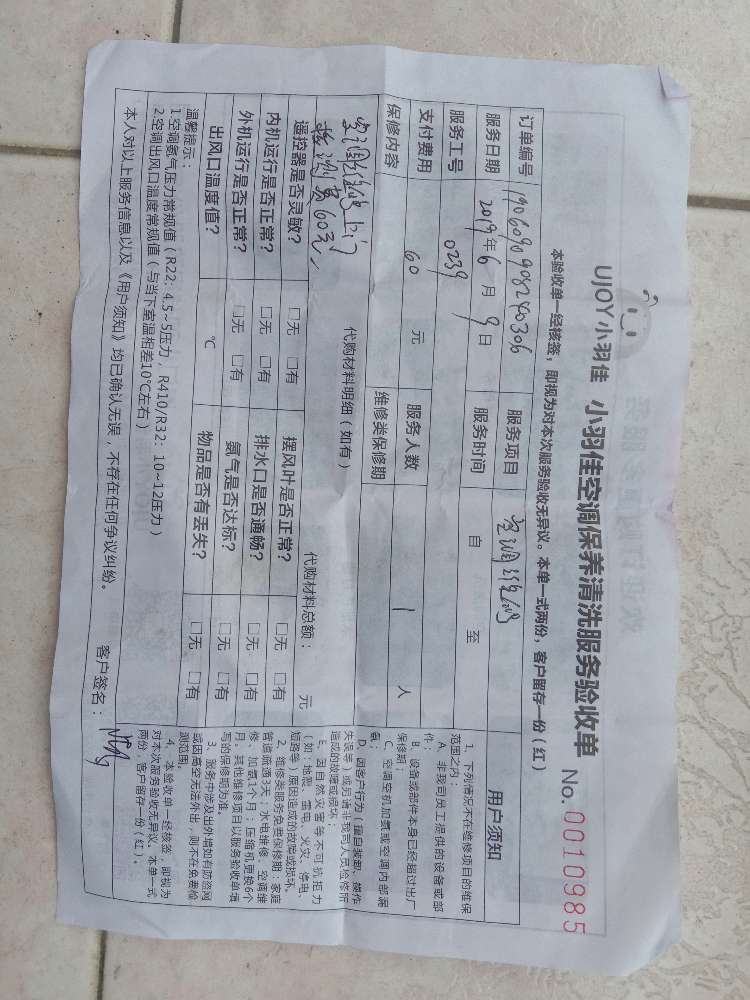 UJOY小羽佳 小羽佳空调保养清洗服务验收单 No. 0010985
本验收单一经核签，即视为对本次服务验收无异议。本单一式两份，客户留存一份（红）
订单编号 1906090908240306 服务项目 空调维修
服务日期 2019年6月9日 服务时间 自 至
服务工号 0239
支付费用 60 元 服务人数 1 人
保修内容 维修类保修期
代购材料明细（如有）
空调维修上门
检测费60元
代购材料总额： 元
遥控器是否灵敏？ □无 □有 摆风叶是否正常？ □无 □有
内机运行是否正常？ □无 □有 排水口是否通畅？ □无 □有
外机运行是否正常？ □无 □有 氨气是否达标？ □无 □有
出风口温度值？ ℃ 物品是否有丢失？ □无 □有
温馨提示：
1.空调氨气压力常规值（R22：4.5~5压力，R410/R32：10~12压力）
2.空调出风口温度常规值（与当下室温相差10℃左右）
本人对以上服务信息以及《用户须知》均已确认无误，不存在任何争议纠纷。
客户签名：
用户须知
1、下列情况不在维修项目的维保
范围之内：
A、非我司员工提供的设备或部
件；
B、设备或部件本身已经超过出厂
保修期；
C、空调空机加氨或空调内部漏
氨；
D、因客户行为（擅自装卸、操作
失误等）或另请非我司人员检修所
造成的故障或损坏；
E、因自然灾害等不可抗拒力
（如：地震、雷电、火灾、停电、
短路等）原因造成的故障或损坏。
2、维修类服务免费保修期：家庭
管道疏通3天；水电维修、空调维
修、加氨1个月；压缩机更换6个
月；其他维修项目以服务验收单填
写的保修期为准。
3、服务中涉及出外墙如有防盗网
或因高空无法外出，则不在免费检
测范围。
4、本验收单一经核签，即视为
对本次服务验收无异议。本单一式
两份，客户留存一份（红）。